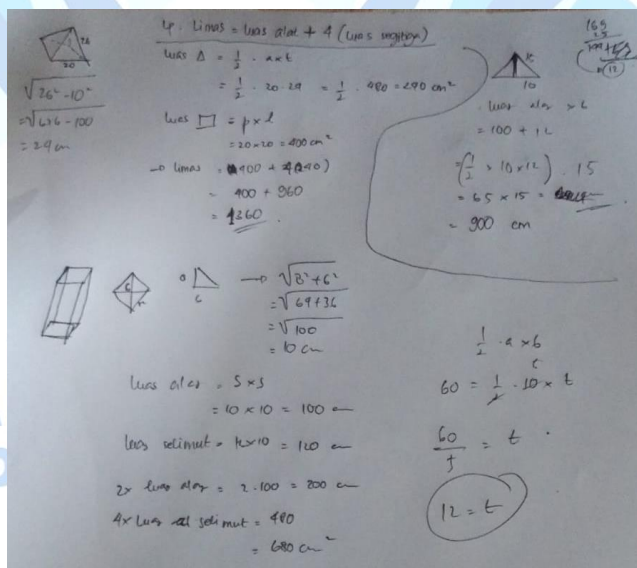 26
20
√26² - 10²
= √676 - 100
= 24 cm
Lp. Limas = luas alas + 4 (luas segitiga)
luas Δ = 1/2 · a x t
= 1/2 · 20 · 24 = 1/2 · 480 = 240 cm²
luas □ = p x l
= 20 x 20 = 400 cm²
→ limas = 400 + 4(240)
= 400 + 960
= 1360
10
luas alas x t
= 100 + 12
= (1/2 x 10 x 12) . 15
= 65 x 15 =
= 900 cm
8
6
→ √8² + 6²
= √64 + 36
= √100
= 10 cm
luas alas = s x s
= 10 x 10 = 100 cm
luas selimut = 12 x 10 = 120 cm
2 x luas alas = 2 . 100 = 200 cm
4 x luas selimut = 480
= 680 cm²
1/2 · a x t
60 = 1/2 · 10 x t
60/5 = t
12 = t